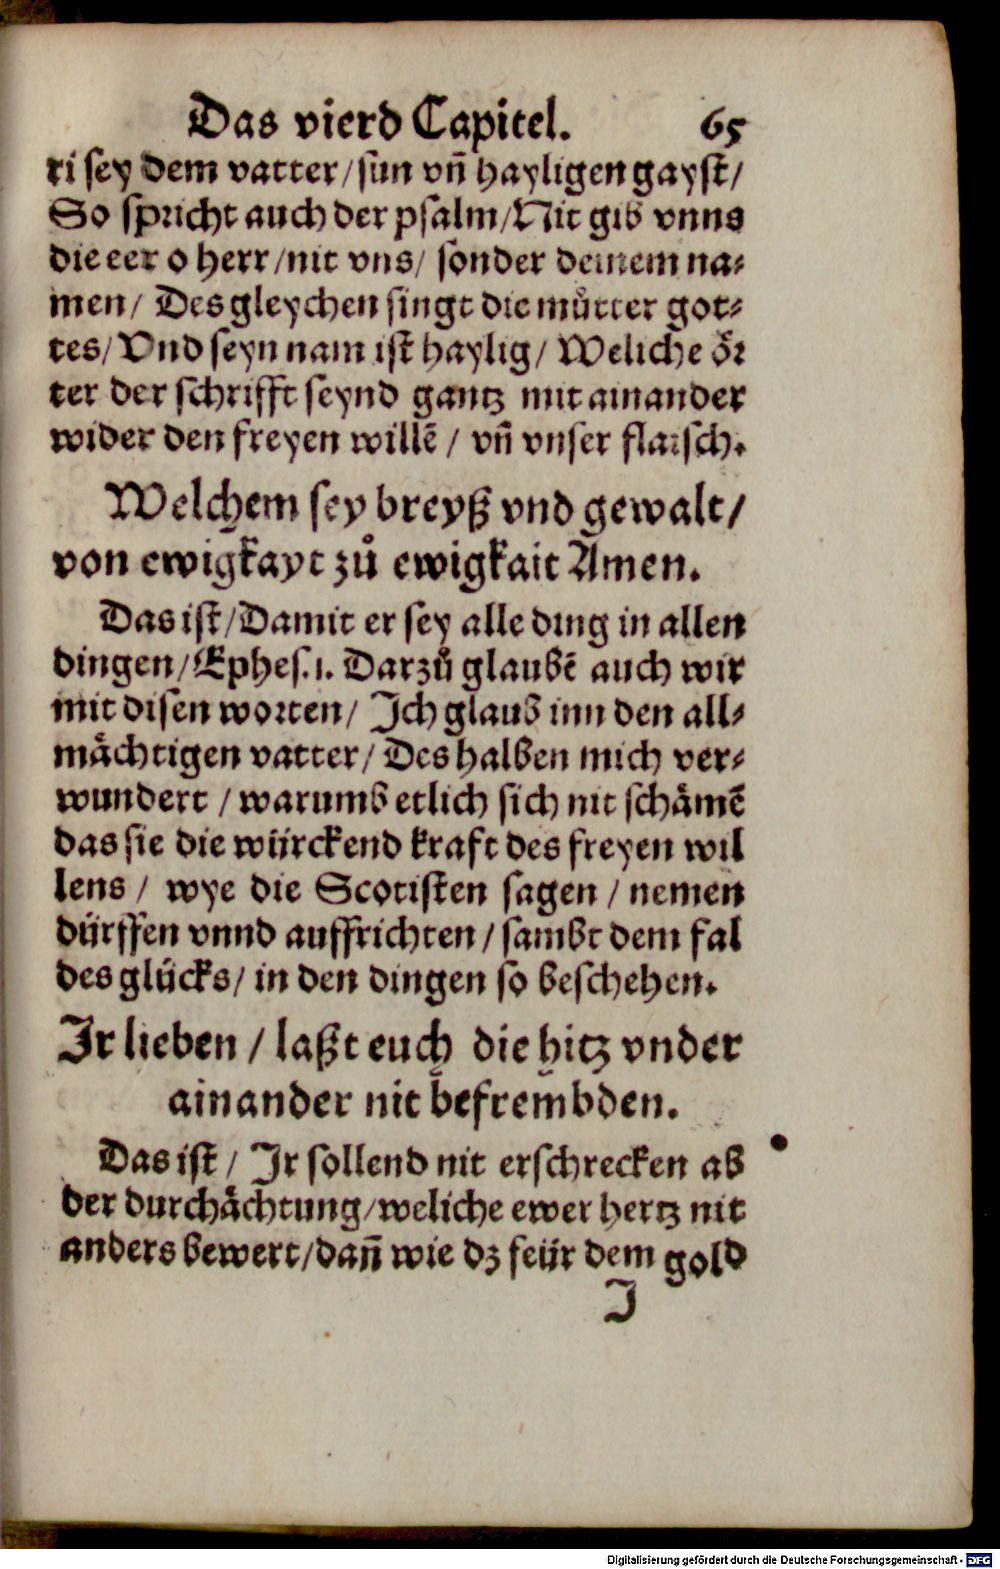 Das vierd Capitel. 65
ri sey dem vatter / sun vñ hayligen gayst /
So spricht auch der psalm / Nit gib vnns
die eer o herr / nit vns / sonder deinem na⸗
men / Des gleychen singt die můtter got⸗
tes / Vnd seyn nam ist haylig / Weliche ȯ̈r
ter der schrifft seynd gantz mit ainander
wider den freyen willẽ / vñ vnser flaisch.
Welchem sey breyß vnd gewalt /
von ewigkayt zů ewigkait Amen.
Das ist / Damit er sey alle ding in allen
dingen / Ephes. 1. Darzů glaubẽ auch wir
mit disen worten / Ich glaub inn den all⸗
mächtigen vatter / Des halben mich ver⸗
wundert / warumb etlich sich nit schämẽ
das sie die würckend kraft des freyen wil
lens / wye die Scotisten sagen / nemen
dürffen vnnd auffrichten / sambt dem fal
des glücks / in den dingen so beschehen.
Ir lieben / laßt euch die hitz vnder
ainander nit befrembden.
Das ist / Ir sollend nit erschrecken ab
der durchächtung / weliche ewer hertz nit
anders bewert / dañ wie dz feür dem gold
I
Digitalisierung gefördert durch die Deutsche Forschungsgemeinschaft - DFG